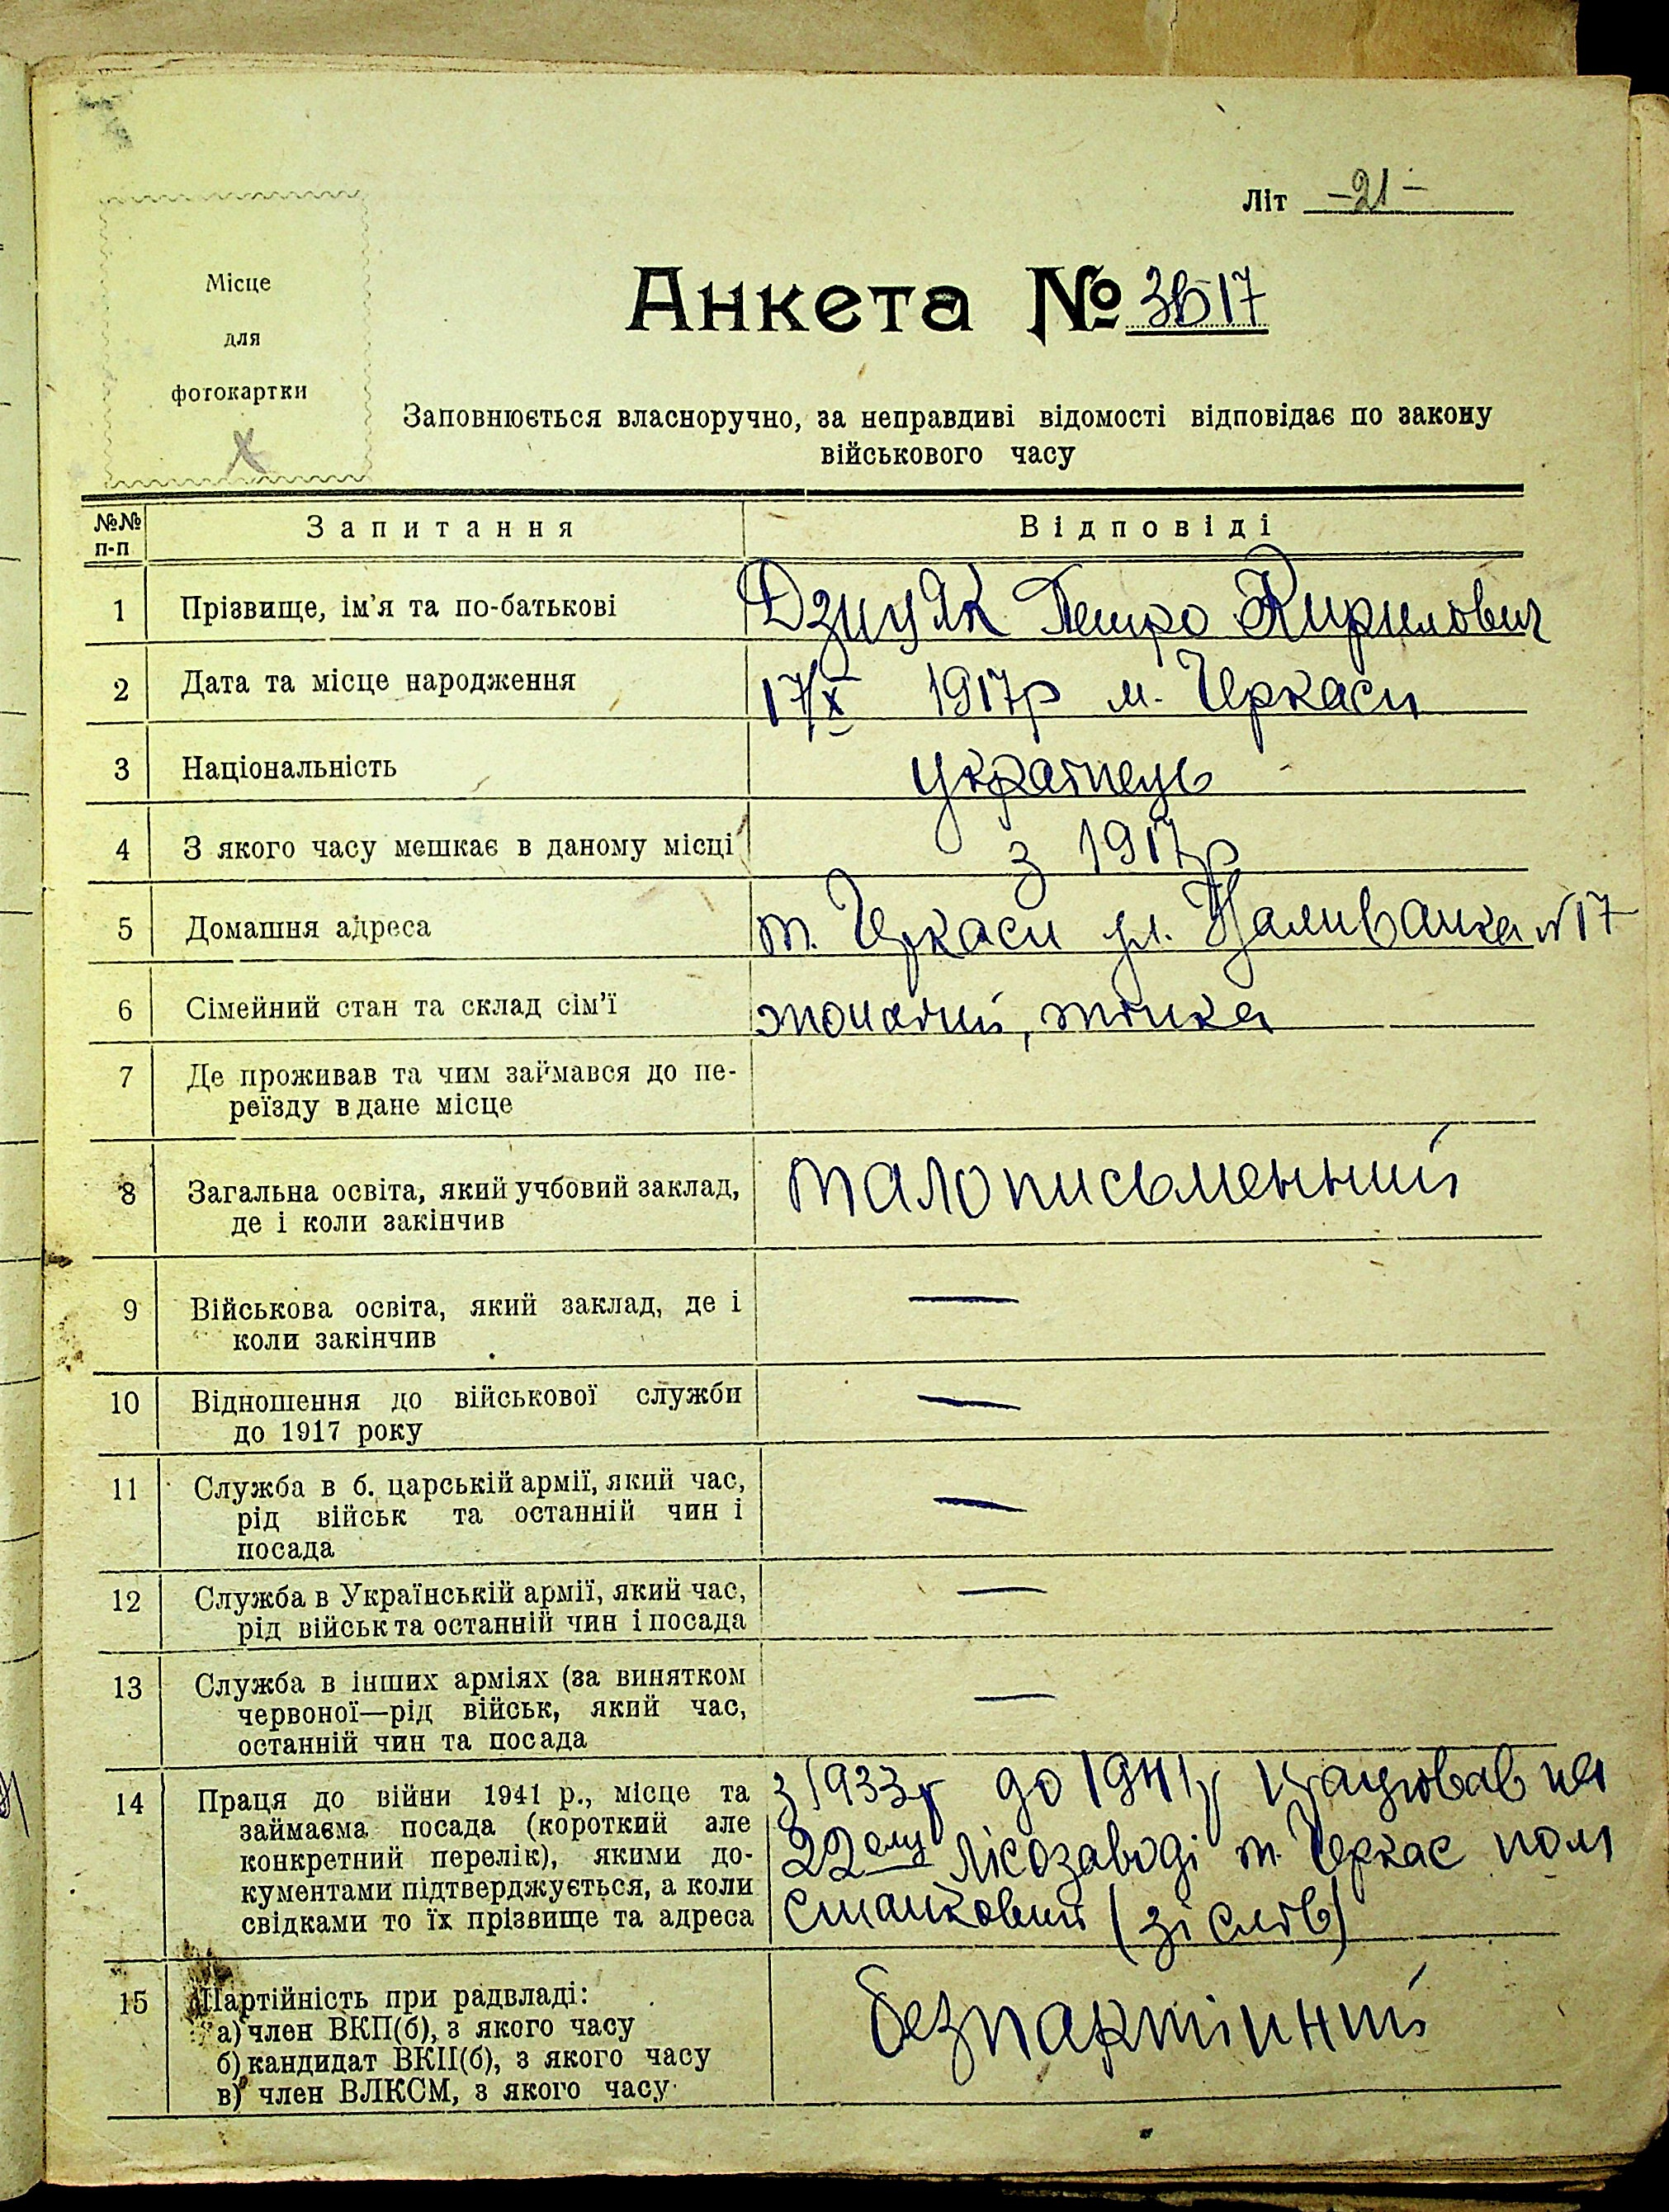 Літ -21-
Місце
для
фотокартки
Анкета № 3617
Заповнюється власноручно, за неправдиві відомості відповідає по закону
військового часу
№№ п-п Запитання Відповіді
1 Прізвище, ім'я та по-батькові Дзицяк Петро Кирилович
2 Дата та місце народження 17/X 1917р м. Черкаси
3 Національність українець
4 З якого часу мешкає в даному місці з 1917р
5 Домашня адреса м. Черкаси ул. Наливайка №17
6 Сімейний стан та склад сім'ї жонатий, жінка
7 Де проживав та чим займався до пе-
реїзду в дане місце
8 Загальна освіта, який учбовий заклад, малописьменьний
де і коли закінчив
9 Військова освіта, який заклад, де і —
коли закінчив
10 Відношення до військової служби —
до 1917 року
11 Служба в б. царській армії, який час, —
рід військ та останній чин і
посада
12 Служба в Українській армії, який час, —
рід військ та останній чин і посада
13 Служба в інших арміях (за винятком —
червоної—рід військ, який час,
останній чин та посада
14 Праця до війни 1941 р., місце та з 1933р до 1941р працював на
займаєма посада (короткий але
конкретний перелік), якими до- 22ому лісозаводі м. Черкас
кументами підтверджується, а коли
свідками то їх прізвище та адреса (зі слів)
15 Партійність при радвладі: безпартійний
а) член ВКП(б), з якого часу
б) кандидат ВКП(б), з якого часу
в) член ВЛКСМ, з якого часу